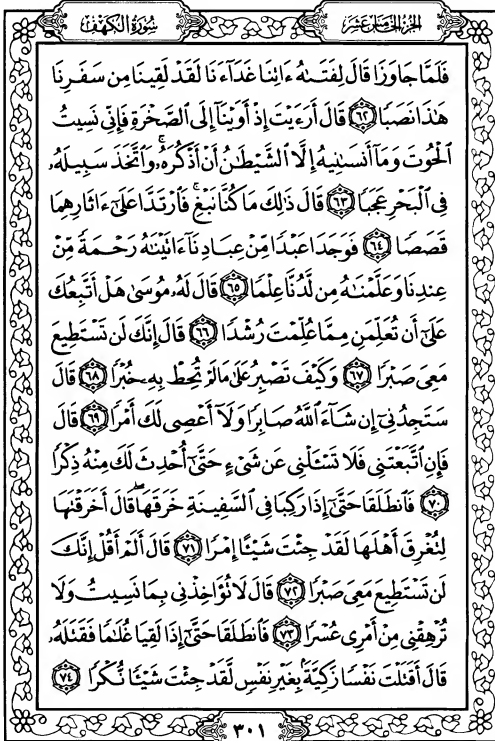 الجزء الخامس عشر
سورة الكهف
فَلَمَّا جَاوَزَا قَالَ لِفَتَىٰهُ ءَاتِنَا غَدَآءَنَا لَقَدْ لَقِينَا مِن سَفَرِنَا
هَٰذَا نَصَبًا ٦٢ قَالَ أَرَءَيْتَ إِذْ أَوَيْنَآ إِلَى ٱلصَّخْرَةِ فَإِنِّى نَسِيتُ
ٱلْحُوتَ وَمَآ أَنسَىٰنِيهُ إِلَّا ٱلشَّيْطَٰنُ أَنْ أَذْكُرَهُۥ ۚ وَٱتَّخَذَ سَبِيلَهُۥ
فِى ٱلْبَحْرِ عَجَبًا ٦٣ قَالَ ذَٰلِكَ مَا كُنَّا نَبْغِ ۚ فَٱرْتَدَّا عَلَىٰٓ ءَاثَارِهِمَا
قَصَصًا ٦٤ فَوَجَدَا عَبْدًا مِّنْ عِبَادِنَآ ءَاتَيْنَٰهُ رَحْمَةً مِّنْ
عِندِنَا وَعَلَّمْنَٰهُ مِن لَّدُنَّا عِلْمًا ٦٥ قَالَ لَهُۥ مُوسَىٰ هَلْ أَتَّبِعُكَ
عَلَىٰٓ أَن تُعَلِّمَنِ مِمَّا عُلِّمْتَ رُشْدًا ٦٦ قَالَ إِنَّكَ لَن تَسْتَطِيعَ
مَعِىَ صَبْرًا ٦٧ وَكَيْفَ تَصْبِرُ عَلَىٰ مَا لَمْ تُحِطْ بِهِۦ خُبْرًا ٦٨ قَالَ
سَتَجِدُنِىٓ إِن شَآءَ ٱللَّهُ صَابِرًا وَلَآ أَعْصِى لَكَ أَمْرًا ٦٩ قَالَ
فَإِنِ ٱتَّبَعْتَنِى فَلَا تَسْـَٔلْنِى عَن شَىْءٍ حَتَّىٰٓ أُحْدِثَ لَكَ مِنْهُ ذِكْرًا
٧٠ فَٱنطَلَقَا حَتَّىٰٓ إِذَا رَكِبَا فِى ٱلسَّفِينَةِ خَرَقَهَا ۖ قَالَ أَخَرَقْتَهَا
لِتُغْرِقَ أَهْلَهَا لَقَدْ جِئْتَ شَيْـًٔا إِمْرًا ٧١ قَالَ أَلَمْ أَقُلْ إِنَّكَ
لَن تَسْتَطِيعَ مَعِىَ صَبْرًا ٧٢ قَالَ لَا تُؤَاخِذْنِى بِمَا نَسِيتُ وَلَا
تُرْهِقْنِى مِنْ أَمْرِى عُسْرًا ٧٣ فَٱنطَلَقَا حَتَّىٰٓ إِذَا لَقِيَا غُلَٰمًا فَقَتَلَهُۥ
قَالَ أَقَتَلْتَ نَفْسًا زَكِيَّةًۢ بِغَيْرِ نَفْسٍ لَّقَدْ جِئْتَ شَيْـًٔا نُّكْرًا ٧٤
٣٠١